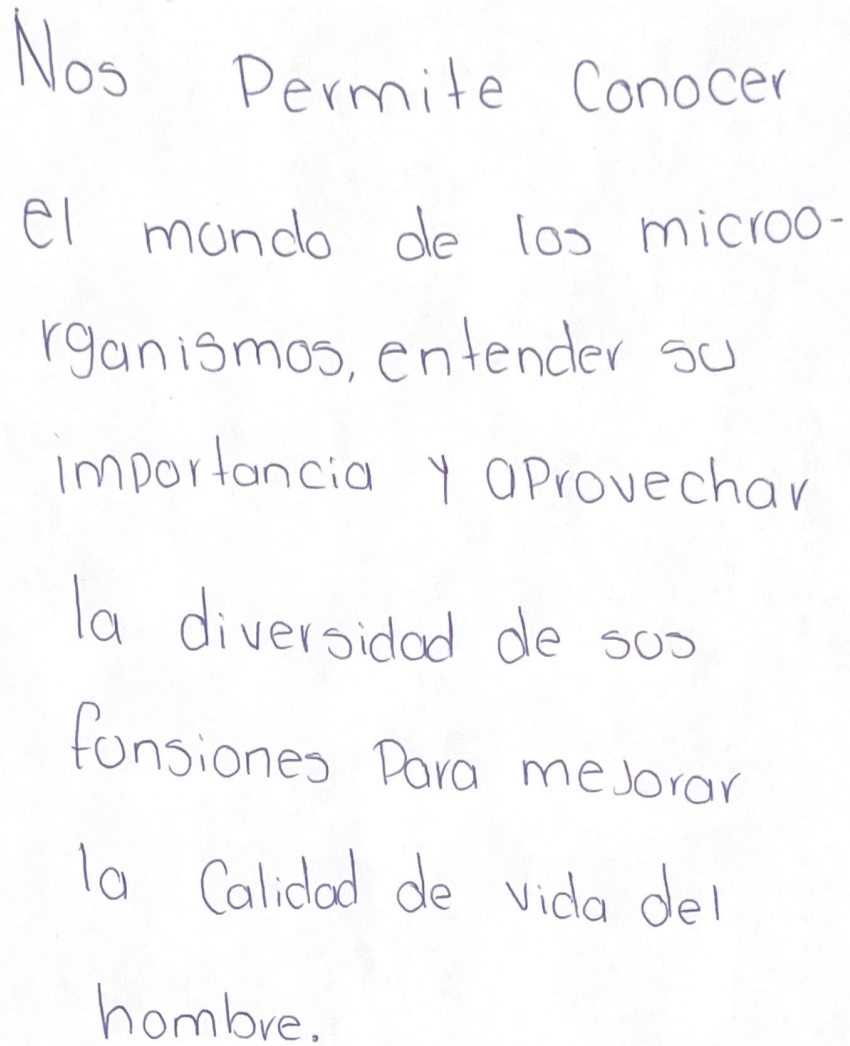 Nos Permite Conocer
el mundo de los microo-
rganismos, entender su
importancia y aprovechar
la diversidad de sus
funsiones Para mejorar
la Calidad de vida del
hombre.